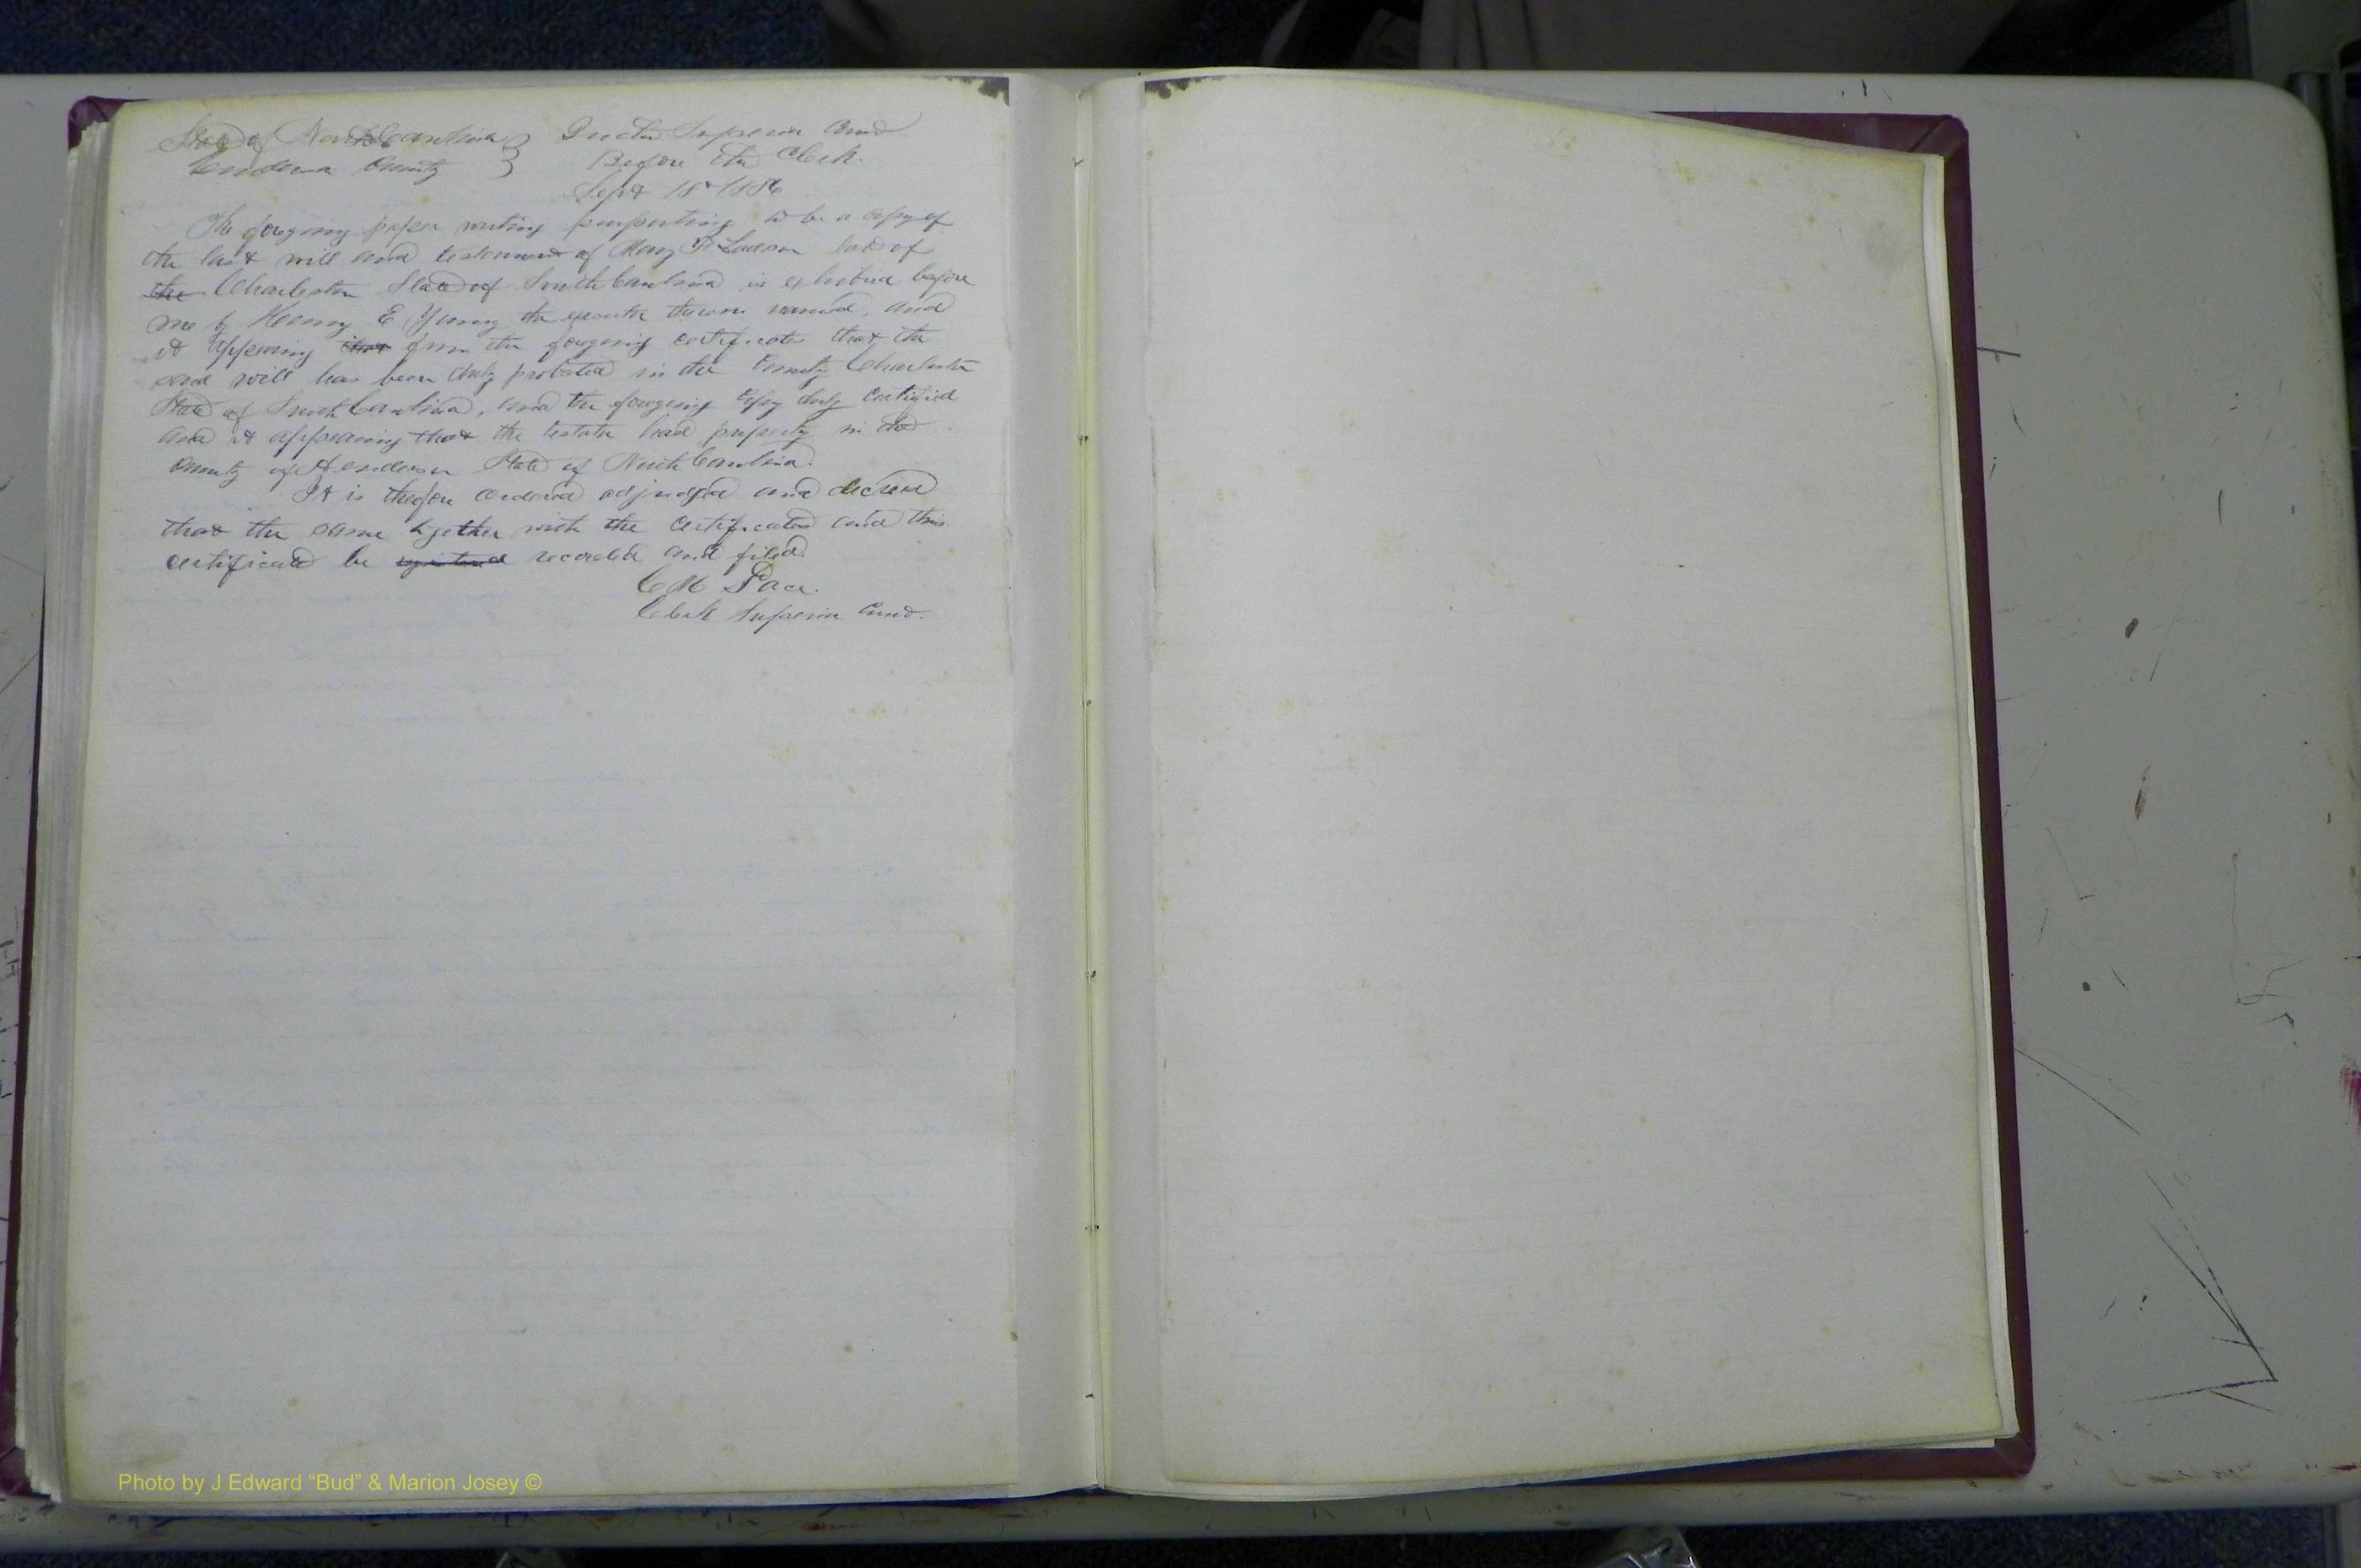 State of North Carolina } In the Superior Court
Henderson County } Before the Clerk.
Sept 18th 1886
The foregoing paper writing purporting to be a copy of
the last will and testament of Mary F Ladson late of
the Charleston State of South Carolina is exhibited before
me by Henry E Young the executor therein named, and
it appearing from the foregoing certificates that the
said will has been duly probated in the County Charleston
State of South Carolina, and the foregoing copy duly certified
and it appearing that the testator had property in the
County of Henderson State of North Carolina.
It is therefore ordered adjudged and decreed
that the same together with the certificates and this
certificate be registered recorded and filed.
C M Pace.
Clerk Superior Court.
Photo by J Edward “Bud” & Marion Josey ©